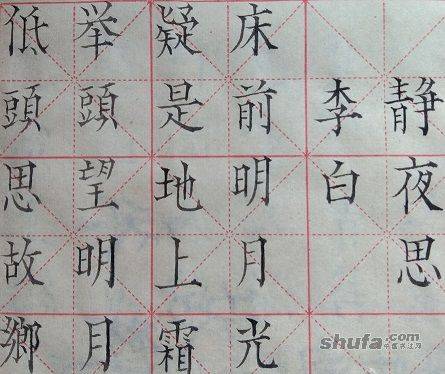 静夜思
李白
床前明月光
疑是地上霜
举頭望明月
低頭思故鄉
shufa.com